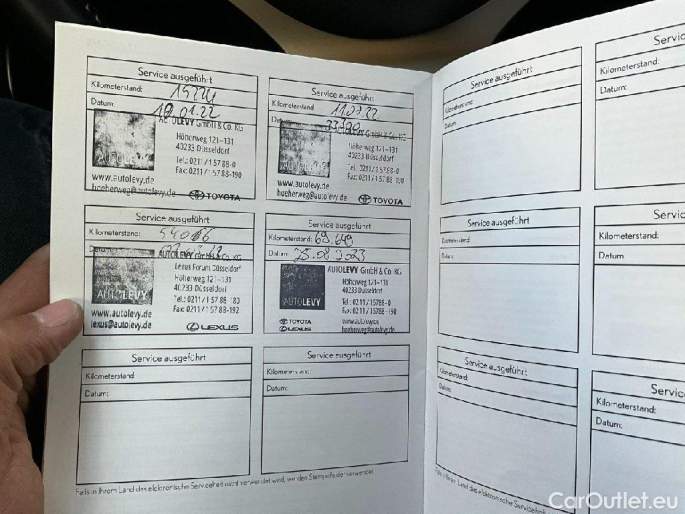 Service ausgeführt
Kilometerstand:
Datum:
10.01.22
AUTOLEVY GmbH & Co. KG
Höherweg 121–131
40233 Düsseldorf
Tel.: 0211/1 57 88-0
Fax: 0211/1 57 88-190
www.autolevy.de
hoeherweg@autolevy.de
TOYOTA
Service ausgeführt
Kilometerstand
11.07.22
Datum:
GmbH & Co. KG
Höherweg 121–131
40233 Düsseldorf
Tel.: 0211/1 57 88-0
Fax: 0211/1 57 88-190
www.autolevy.de
hoeherweg@autolevy.de
TOYOTA
Service ausgeführt
Kilometerstand:
54016
Datum:
AUTOLEVY GmbH & Co. KG
Lexus Forum Düsseldorf
Höherweg 121–131
40233 Düsseldorf
AUTOLEVY
Tel.: 0211/1 57 88-180
Fax: 0211/1 57 88-192
www.autolevy.de
lexus@autolevy.de
LEXUS
Service ausgeführt
Kilometerstand: 69.649
Datum: 25.08.2023
AUTOLEVY GmbH & Co. KG
Höherweg 121–131
40233 Düsseldorf
AUTOLEVY
Tel.: 0211/15788-0
Fax: 0211/15788-190
TOYOTA
www.autolevy.de
LEXUS
hoeherweg@autolevy.de
Service ausgeführt
Kilometerstand:
Datum:
Service ausgeführt
Kilometerstand:
Datum:
Falls in Ihrem Land das elektronische Serviceheft nicht verwendet wird, wird der
Service ausgeführt
Kilometerstand:
Datum:
Service ausgeführt
Kilometerstand:
Datum:
Service ausgeführt
Kilometerstand:
Datum:
Falls in Ihrem Land das elektronische
Servic
Kilometerstand:
Datum:
Servic
Kilometerstand:
Datum:
Servic
Kilometerstand:
Datum:
CarOutlet.eu